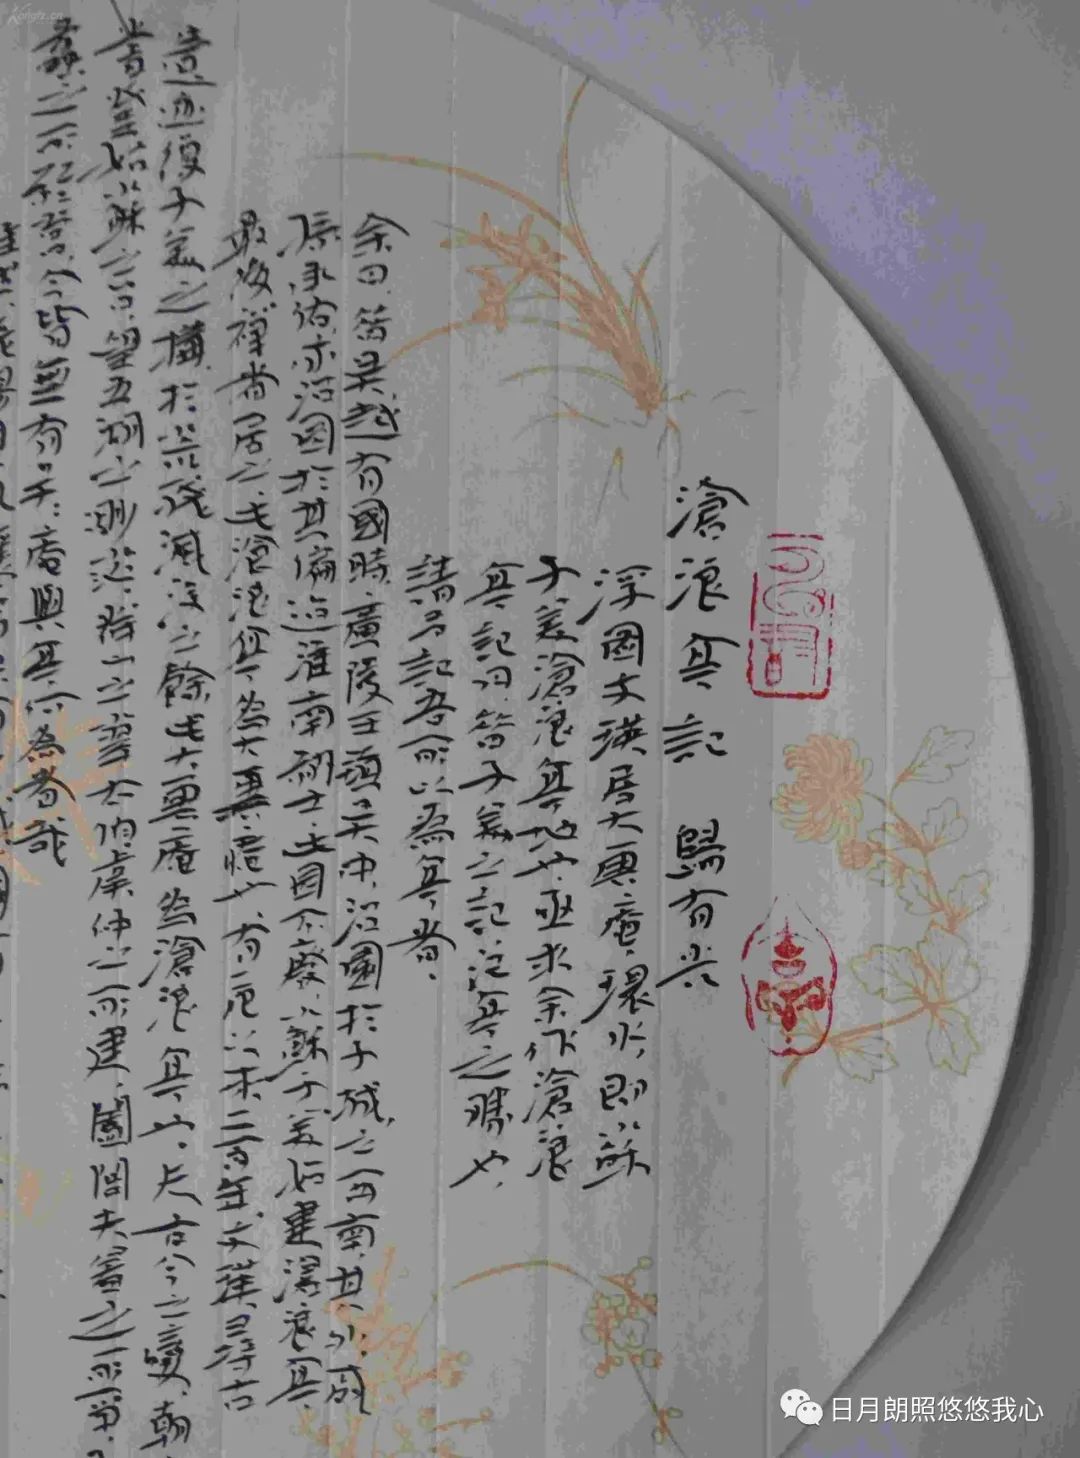 滄浪亭記 歸有光
浮圖文瑛居大雲庵,環水,即蘇
子美滄浪亭地也,亟求余作滄浪
亭記,曰,昔子美之記,記亭之勝也,
請子記吾所以為亭者,
余曰,昔吳越有國時,廣陵王鎮吳中,治園於子城之西南,其外戚
孫承佑,亦治園於其偏,迨淮南納土,此園不廢,蘇子美始建滄浪亭
最後禪者居之,此滄浪亭為大雲庵也,有庵以來二百年,文瑛尋古
遺迹,復子美之構於荒殘滅沒之餘,此大雲庵為滄浪亭也,夫古今之變,朝
嘗登姑蘇之台,望五湖之渺茫,群山之蒼翠,太伯虞仲之所建,闔閭夫差之所爭,
蠡之所經營,今皆無有矣,庵與亭何為者哉
日月朗照悠悠我心